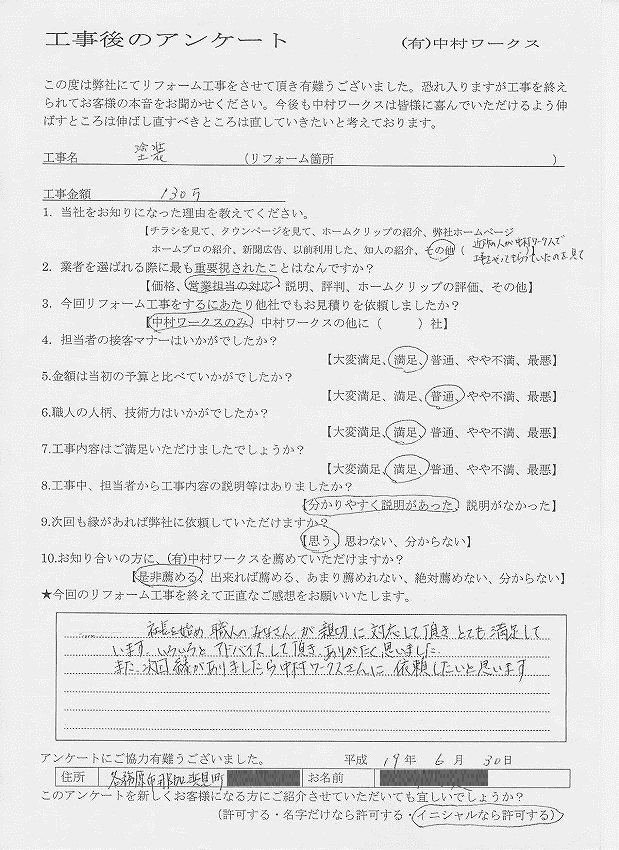 工事後のアンケート (有)中村ワークス
この度は弊社にてリフォーム工事をさせて頂き有難うございました。恐れ入りますが工事を終え
られてお客様の本音をお聞かせください。今後も中村ワークスは皆様に喜んでいただけるよう伸
ばすところは伸ばし直すべきところは直していきたいと考えております。
工事名 塗装 (リフォーム箇所 )
工事金額 130万
1. 当社をお知りになった理由を教えてください。
【チラシを見て、タウンページを見て、ホームクリップの紹介、弊社ホームページ
ホームプロの紹介、新聞広告、以前利用した、知人の紹介、その他(
2. 業者を選ばれる際に最も重要視されたことはなんですか?
【価格、営業担当の対応・説明、評判、ホームクリップの評価、その他】
3. 今回リフォーム工事をするにあたり他社でもお見積りを依頼しましたか?
【中村ワークスのみ、中村ワークスの他に( )社】
4. 担当者の接客マナーはいかがでしたか?
【大変満足、満足、普通、やや不満、最悪】
5.金額は当初の予算と比べていかがでしたか?
【大変満足、満足、普通、やや不満、最悪】
6.職人の人柄、技術力はいかがでしたか?
【大変満足、満足、普通、やや不満、最悪】
7.工事内容はご満足いただけましたでしょうか?
【大変満足、満足、普通、やや不満、最悪】
8.工事中、担当者から工事内容の説明等はありましたか?
【分かりやすく説明があった、説明がなかった】
9.次回も縁があれば弊社に依頼していただけますか?
【思う、思わない、分からない】
10.お知り合いの方に、(有)中村ワークスを薦めていただけますか?
【是非薦める、出来れば薦める、あまり薦めれない、絶対薦めない、分からない】
★今回のリフォーム工事を終えて正直なご感想をお願いいたします。
社長を始め 職人のみなさんが 親切に対応して頂き とても満足して
います。いろいろと アドバイスして頂き ありがたく思いました。
また、次回縁がありましたら中村ワークスさんに 依頼したいと思います
アンケートにご協力有難うございました。 平成 19年 6月 30日
住所 各務原市那加 町 お名前
このアンケートを新しくお客様になる方にご紹介させていただいても宜しいでしょうか?
(許可する・名字だけなら許可する・イニシャルなら許可する)